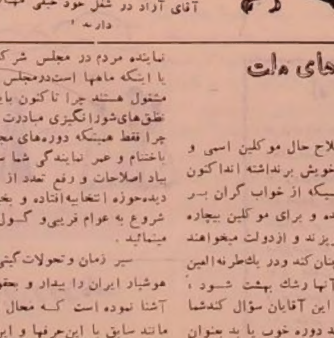 آقای آراد در شغل خود خیلی
دارند '
های ملت
لاح حال موکلین اسمی و
خویش برنداشته اندا کنون
میکه از خواب گران بر
ه و برای موکلین بیچاره
یزند و ازدولت میخواهند
چنان کند ودر یكطرفه العین
آنها رشك بهشت شود ،
این آقایان سؤال کندشما
دوره خوب یا بد بعنوان
نماینده مردم در مجلس شر
با اینکه ماهها است درمجلس
مشغول هستند چرا تا کنون
نطق های شورانگیزی مبادرت
چرا فقط همینکه دوره های
باختنام و عمر نمایندگی شما
بیاد اصلاحات و رفع تعدد از
دیده حوزه انتخابیه افتاده و
شروع به عوام فریبی و گول
مینمائید .
سیر زمان و تحولات گیتی
هوشیار ایران را بیدار و بحقو
آشنا نموده است که محال
مانند سابق با این حرفها و این